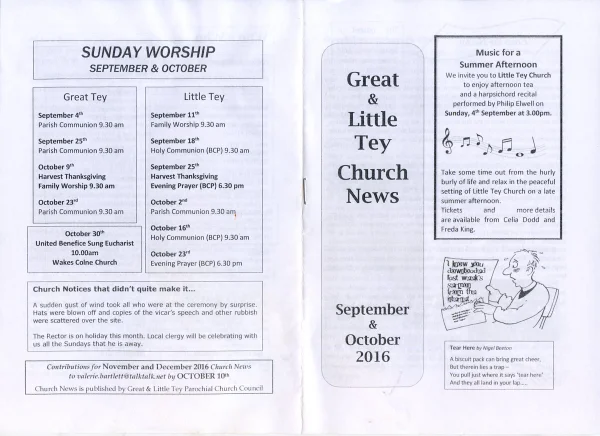 SUNDAY WORSHIP
SEPTEMBER & OCTOBER
Great Tey
September 4th
Parish Communion 9.30 am
September 25th
Parish Communion 9.30 am
October 9th
Harvest Thanksgiving
Family Worship 9.30 am
October 23rd
Parish Communion 9.30 am
October 30th
United Benefice Sung Eucharist
10.00am
Wakes Colne Church
Little Tey
September 11th
Family Worship 9.30 am
September 18th
Holy Communion (BCP) 9.30 am
September 25th
Harvest Thanksgiving
Evening Prayer (BCP) 6.30 pm
October 2nd
Parish Communion 9.30 am
October 16th
Holy Communion (BCP) 9.30 am
October 23rd
Evening Prayer (BCP) 6.30 pm
Church Notices that didn't quite make it...
A sudden gust of wind took all who were at the ceremony by surprise.
Hats were blown off and copies of the vicar's speech and other rubbish
were scattered over the site.
The Rector is on holiday this month. Local clergy will be celebrating with
us all the Sundays that he is away.
Contributions for November and December 2016 Church News
to valerie.bartlett@talktalk.net by OCTOBER 10th
Church News is published by Great & Little Tey Parochial Church Council
Great
&
Little
Tey
Church
News
September
&
October
2016
Music for a
Summer Afternoon
We invite you to Little Tey Church
to enjoy afternoon tea
and a harpsichord recital
performed by Philip Elwell on
Sunday, 4th September at 3.00pm.
Take some time out from the hurly
burly of life and relax in the peaceful
setting of Little Tey Church on a late
summer afternoon.
Tickets and more details
are available from Celia Dodd and
Freda King.
I knew you
downloaded
last week's
sermon
from the
internet
Tear Here by Nigel Beeton
A biscuit pack can bring great cheer,
But therein lies a trap –
You pull just where it says 'tear here'
And they all land in your lap.....